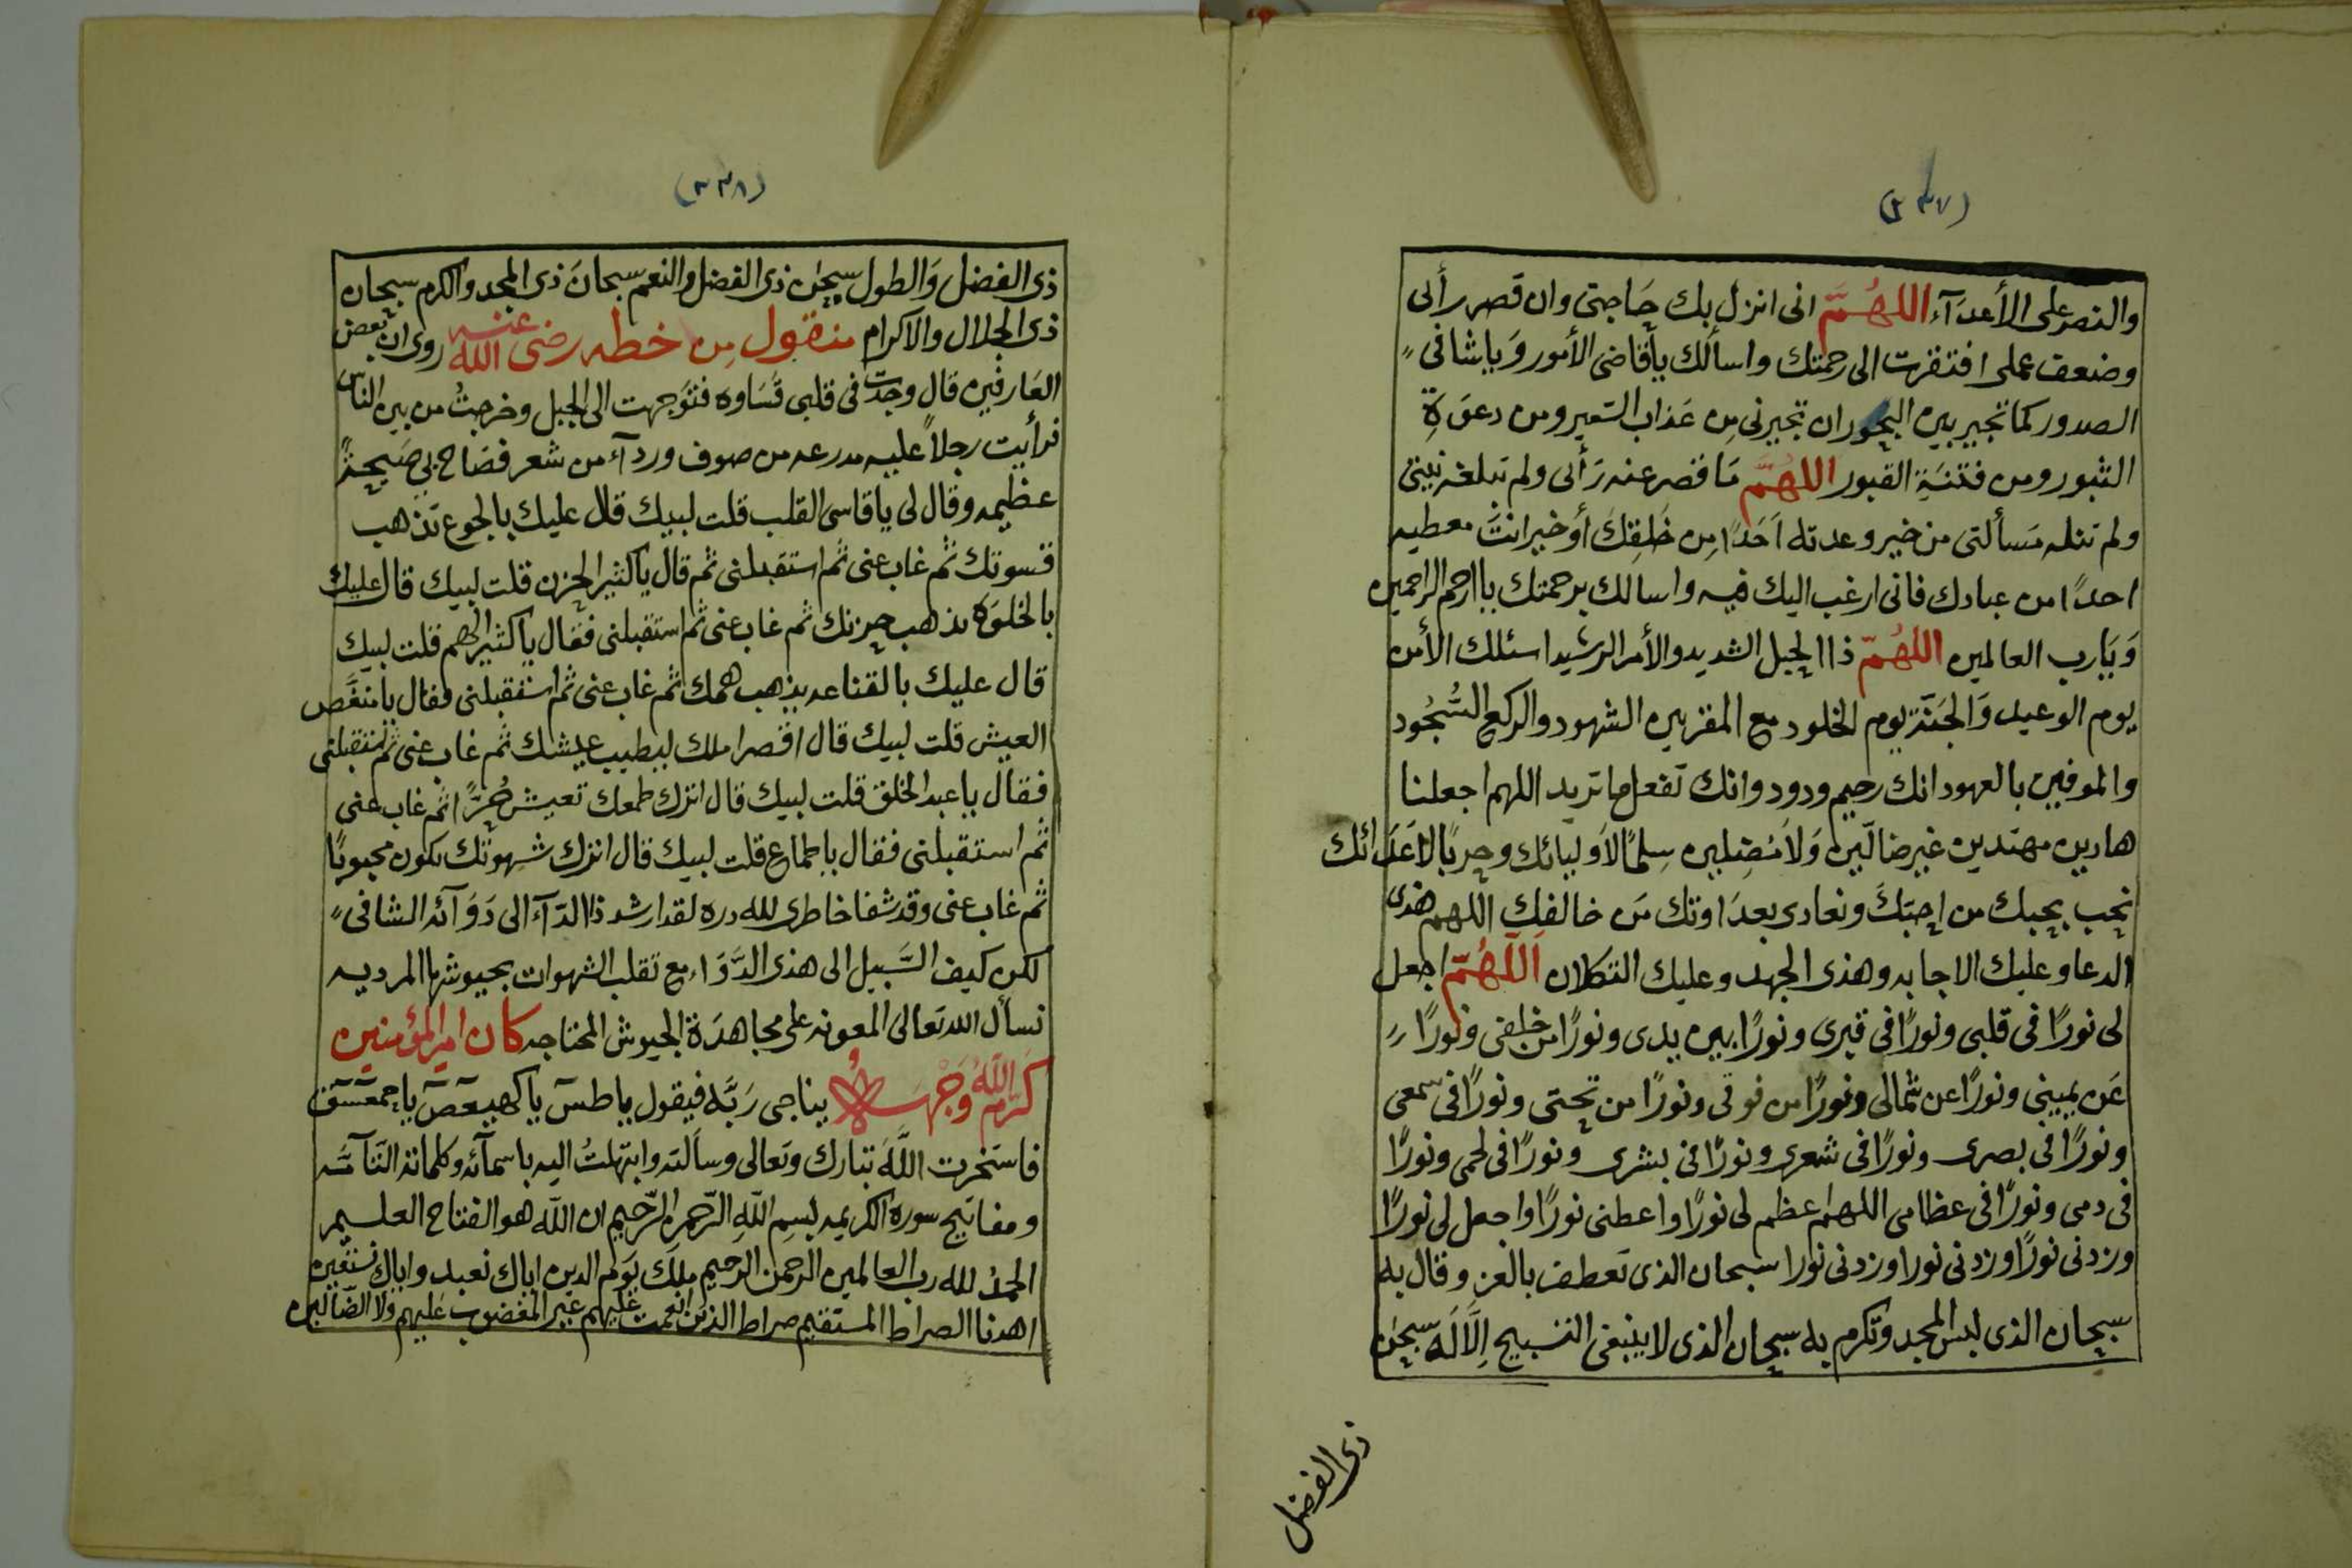 (٢٣٧)
والنصر على الأعدآء اللهُمَّ انى انزل بك حَاجتى وان قصر رأى
وضعف عملى افتقرت الى رحمتك واسألك يأقاضى الأمور وَياشافى
الصدور كما تجير بين البحور ان تجيرنى مِن عَذاب السّعير ومن دعوَةِ
الثبور ومن فتنَةِ القبور اللهُمَّ مَا قصر عنه رَأى ولم تبلغه نيتى
ولم تنله مَسألتى من خير وعدته اَحَدًا مِن خَلقِكَ أو خير انتَ معطيه
احدًا من عبادك فانى ارغب اليك فيه واسالك برحمتك ياارحم الراحمين
وَيَارب العالمين اللهُمّ ذا الحبل الشديد والأمر الرشيد اسئلك الأمن
يوم الوعيد وَالجَنّة يوم الخلود مع المقربين الشهود والركع السُّجُود
والموفين بالعهود انك رحيم ودود وانك تفعل ما تريد اللهم اجعلنا
هادين مهتدين غير ضالّين وَلاَ مُضِلين سِلمًا لاَوليائك وحربًا لاَعدَائك
نحب بحبك من احبّكَ ونعادى بعدَاوتك مَن خالفك اللهم هذى
الدعا وعليك الاجابه وهذى الجهد وعليك التكلان اللّهُمّ اجعل
لى نورًا فى قلبى ونورًا فى قبرى ونورًا بين يدى ونورًا من خلفى ونورًا
عَن يمينى ونورًا عن شمالى ونورًا من فوقى ونورًا من تحتى ونورًا فى سمعى
ونورًا فى بصرى ونورًا فى شعرى ونورًا فى بشرى ونورًا فى لحمى ونورًا
فى دمى ونورًا فى عظامى اللهم اعظم لى نورًا واعطنى نورًا واجعل لى نورًا
وزدنى نورًا وزدنى نورا وزدنى نورا سبحان الذى تعطف بالعز وقال به
سبحان الذى لبس المجد وتكرم به سبحان الذى لا ينبغى التسبيح اِلاَّ لَه سبحٰن
ذى الفضل
(٢٣٨)
ذى الفضل وَالطول سبحٰن ذى الفضل والنعم سبحانَ ذى المجد والكرم سبحان
ذى الجلال والاكرام منقول مِن خطه رضى الله عنه روى ان بعض
العَارفين قال وجدت فى قلبى قسَاوه فتوَجهت الى الجبل وخرجتُ من بين الناس
فرأيت رجلاً عليه مدرعه من صوف وردآء من شعر فصَاح بى صَيحةً
عظيمه وقال لى ياقاسى القلب قلت لبيك قال عليك بالجوع تذهب
قسوتك ثم غاب عنى ثم استقبلنى ثم قال ياكثير الحزن قلت لبيك قال عليك
بالخلوَة يذهب حزنك ثم غاب عنى ثم استقبلنى فقال ياكثير الهم قلت لبيك
قال عليك بالقناعه يذهب همك ثم غاب عنى ثم استقبلنى فقال يامنغّص
العيش قلت لبيك قال اقصر املك ليطيب عيشك ثم غاب عنى ثم استقبلنى
فقال ياعبد الخلق قلت لبيك قال اترك طمعك تعيش حُرًّا ثم غاب عنى
ثم استقبلنى فقال ياطماع قلت لبيك قال اترك شهوتك يكون محبوبًا
ثم غاب عنى وقد شفا خاطرى لله دره لقد ارشد ذا الدّآء الى دَوَآئه الشافى
لكن كيف السَّبيل الى هذى الدَّوَاء مع تقلب الشهوات بجيوشها المرديه
نسأل الله تعالى المعونه على مجاهدَة الجيوش المحتاجه كان امير المؤمنين
كَرّم اللهُ وَجْهَهُ يناجى رَبَّه فيقول ياطسٓ ياكهيعٓصٓ ياحمعٓسٓقٓ
فاستخرت اللَّهَ تبارك وتعالى وسالته وابتهلتُ اليه باسمآئه وكلماته التَآمّه
ومفاتيح سوره الكريمه بسمِ اللهِ الرّحمن الرّحيم ان الله هو الفتاح العليم
الحمدُ لله رب العالمين الرحمن الرحيم ملك يوم الدين اياك نعبد واياك نستعين
اهدنا الصراط المستقيم صراط الذين انعمت عليهم غير المغضوب عَليهم ولا الضّالين